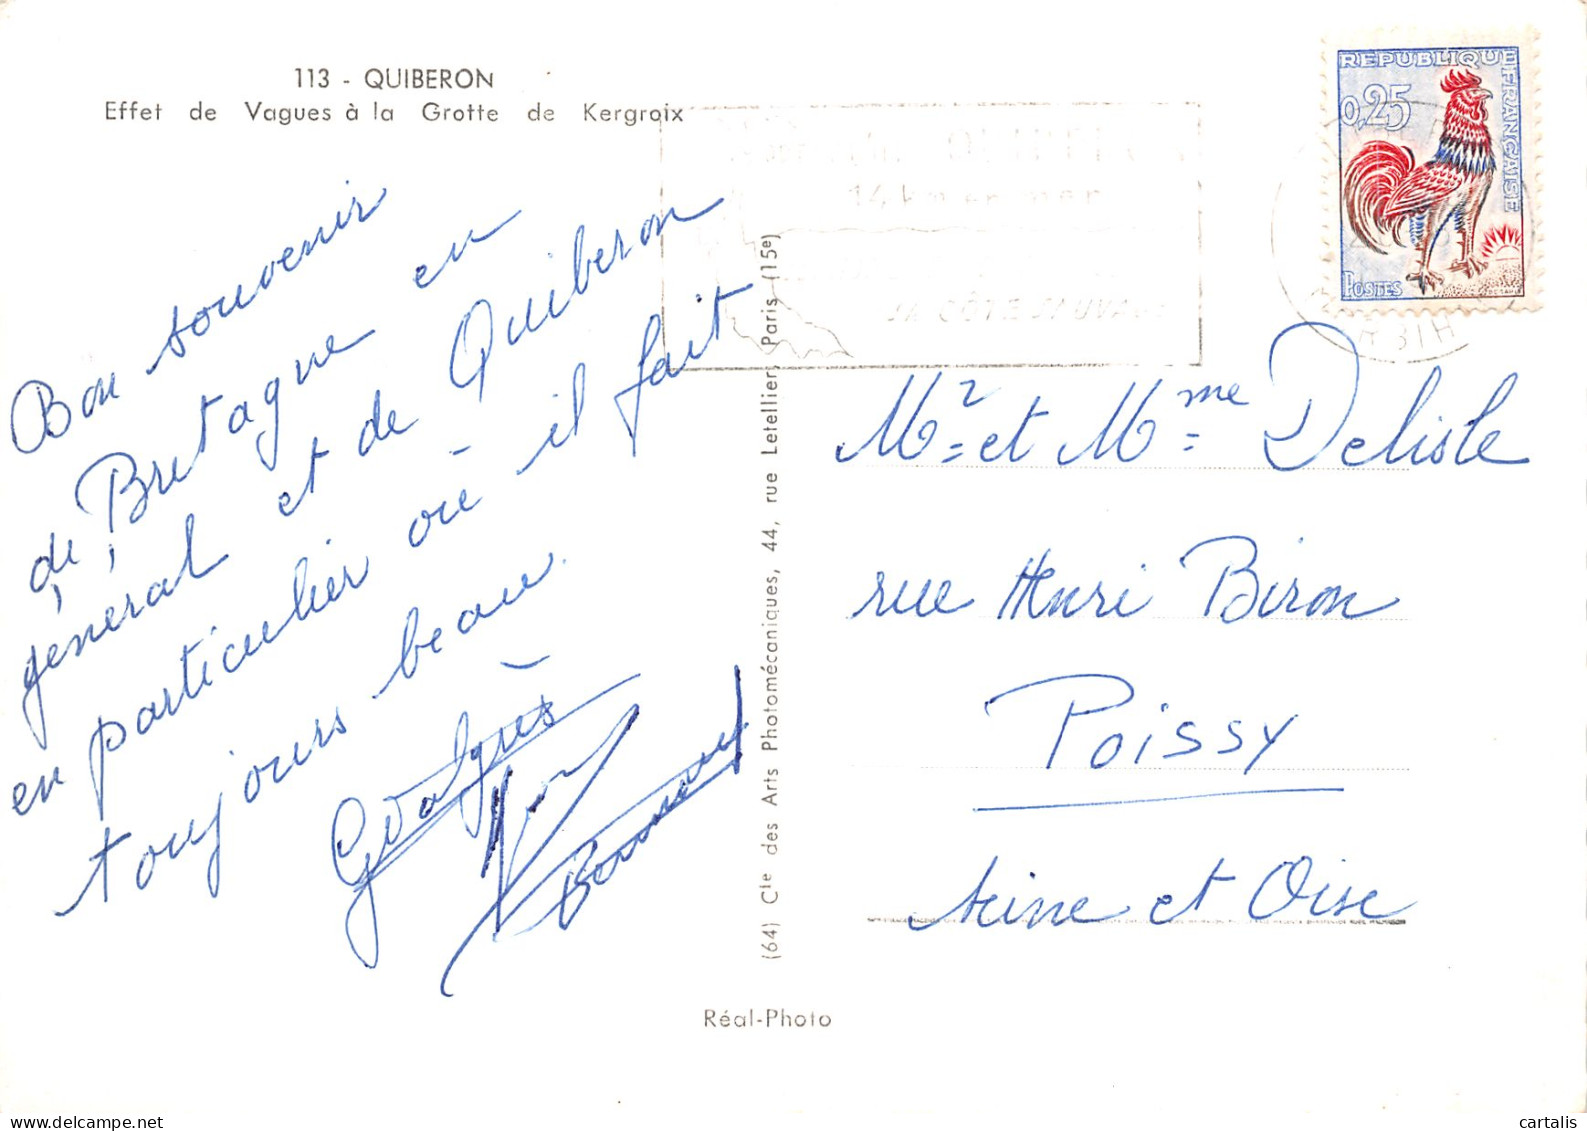 113 - QUIBERON
Effet de Vagues à la Grotte de Kergroix
REPUBLIQUE FRANÇAISE
0,25
POSTES
14 km en mer
LA CÔTE SAUVAGE
Bon souvenir
de Bretagne en
général et de Quiberon
en particulier où il fait
toujours beau.
Mr et Mme Delisle
rue Henri Biron
Poissy
Seine et Oise
(64) Cie des Arts Photomécaniques, 44, rue Letellier, Paris (15e)
Réal-Photo
cartalis